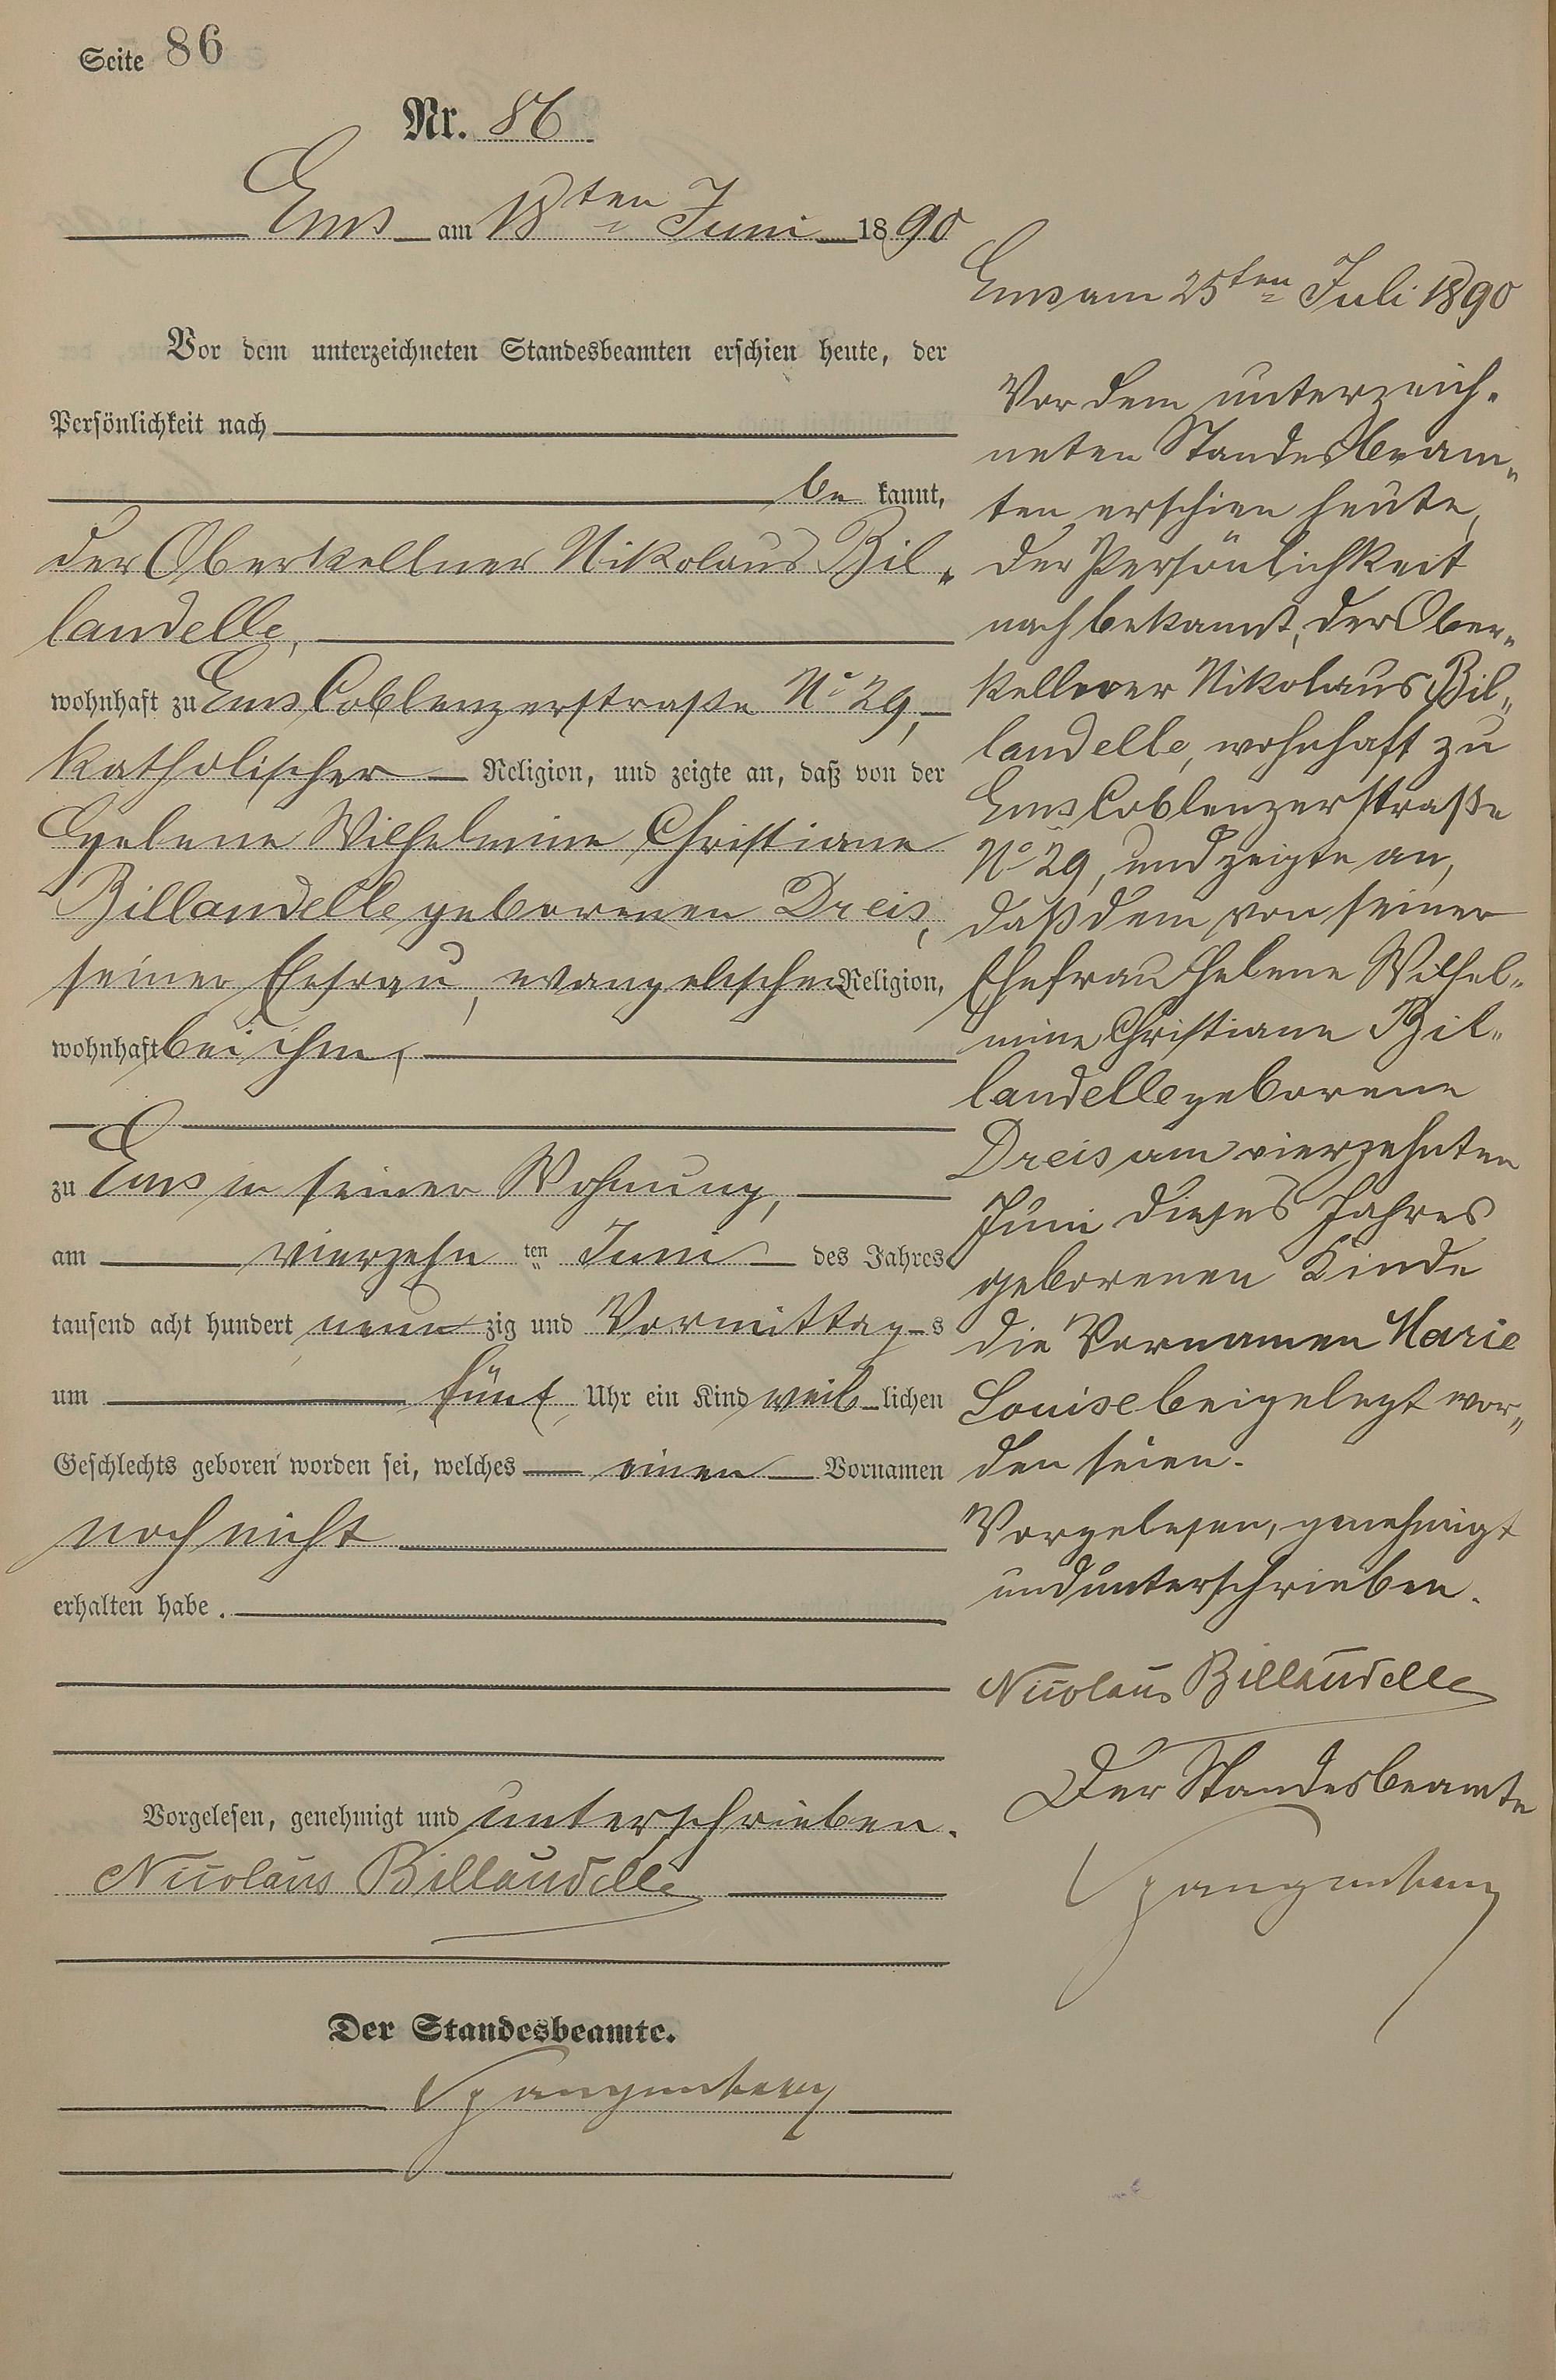 Seite 86
Nr. 86
Ems am 18ten Juni 1890
Vor dem unterzeichneten Standesbeamten erschien heute, der
Persönlichkeit nach
be kannt,
der Oberkellner Nikolaus Bil-
landelle,
wohnhaft zu Ems Coblenzerstraße No 29,
katholischer Religion, und zeigte an, daß von der
Helene Wilhelmine Christiane
Billandelle geborenen Dreis,
seiner Ehefrau, evangelischer Religion,
wohnhaft bei ihm,
zu Ems in seiner Wohnung,
am vierzehn ten Juni des Jahres
tausend acht hundert neun zig und Vormittag s
um fünf Uhr ein Kind weib lichen
Geschlechts geboren worden sei, welches einen Vornamen
noch nicht
erhalten habe.
Vorgelesen, genehmigt und unterschrieben.
Nicolaus Billaudelle
Der Standesbeamte.
Spangenberg
Ems am 25ten Juli 1890
Vor dem unterzeich-
neten Standesbeam-
ten erschien heute,
der Persönlichkeit
nach bekannt, der Ober-
kellner Nikolaus Bil-
landelle, wohnhaft zu
Ems Coblenzerstraße
No 29, und zeigte an,
daß dem von seiner
Ehefrau Helene Wilhel-
mine Christiane Bil-
landelle geborene
Dreis am vierzehnten
Juni dieses Jahres
geborenen Kinde
die Vornamen Marie
Louise beigelegt wor-
den seien.
Vorgelesen, genehmigt
und unterschrieben.
Nicolaus Billaudelle
Der Standesbeamte
Spangenberg